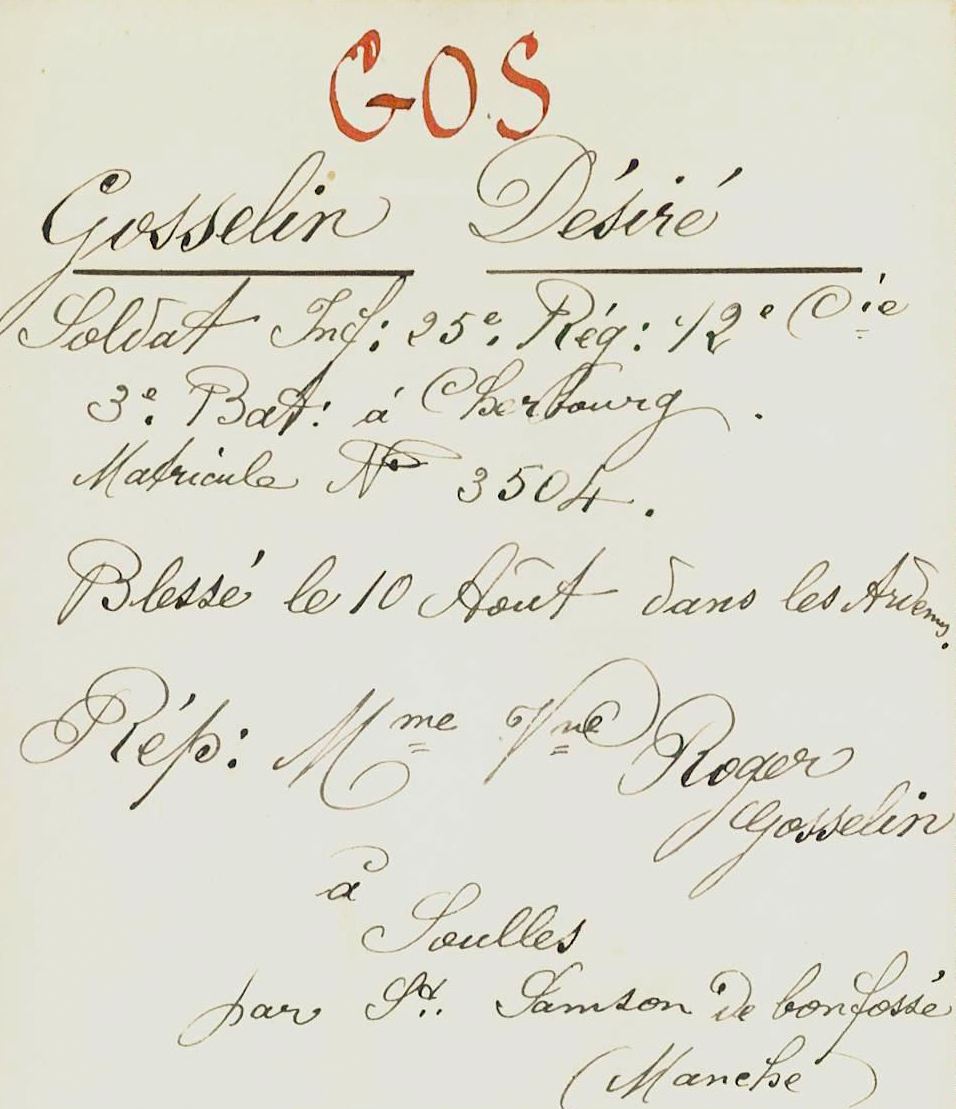 GOS
Gosselin Désiré
Soldat Inf: 25e. Rég: 12e Cie
3e. Bat: à Cherbourg.
Matricule No 3504.
Blessé le 10 Août dans les Ardennes.
Rép: Mme Vve Roger
Gosselin
à
Soulles
par St. Samson de bonfossé
(Manche)